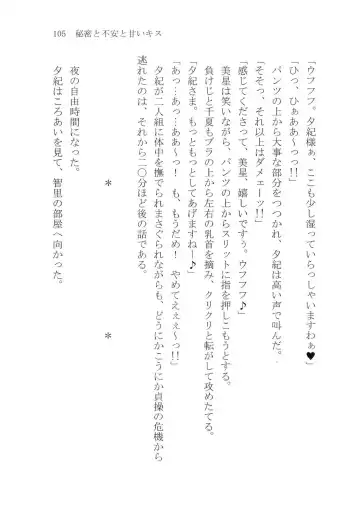 105　秘密と不安と甘いキス
「ウフフ。夕紀様ぁ、ここも少し湿っていらっしゃいますわぁ♥」
「ひっ、ひぁああ〜っっ!!」
パンツの上から大事な部分をつつかれ、夕紀は高い声で叫んだ。
「そそっ、それ以上はダメェーッ!!」
「感じてくださって、美星、嬉しいですぅ。ウフフフ♪」
美星は笑いながら、パンツの上からスリットに指を押しこもうとする。
負けじと千夏もブラの上から左右の乳首を摘み、クリクリと転がして攻めたてる。
「夕紀さま。もっともっとしてあげますねー♪」
「あっ…あっ…ああ〜っ！　も、もうだめ！　やめてえぇぇ〜っ!!」
夕紀が二人組に体中を撫でられまさぐられながらも、どうにかこうにか貞操の危機から
逃れたのは、それから二〇分ほど後の話である。
＊　　　＊
夜の自由時間になった。
夕紀はころあいを見て、智里の部屋へ向かった。